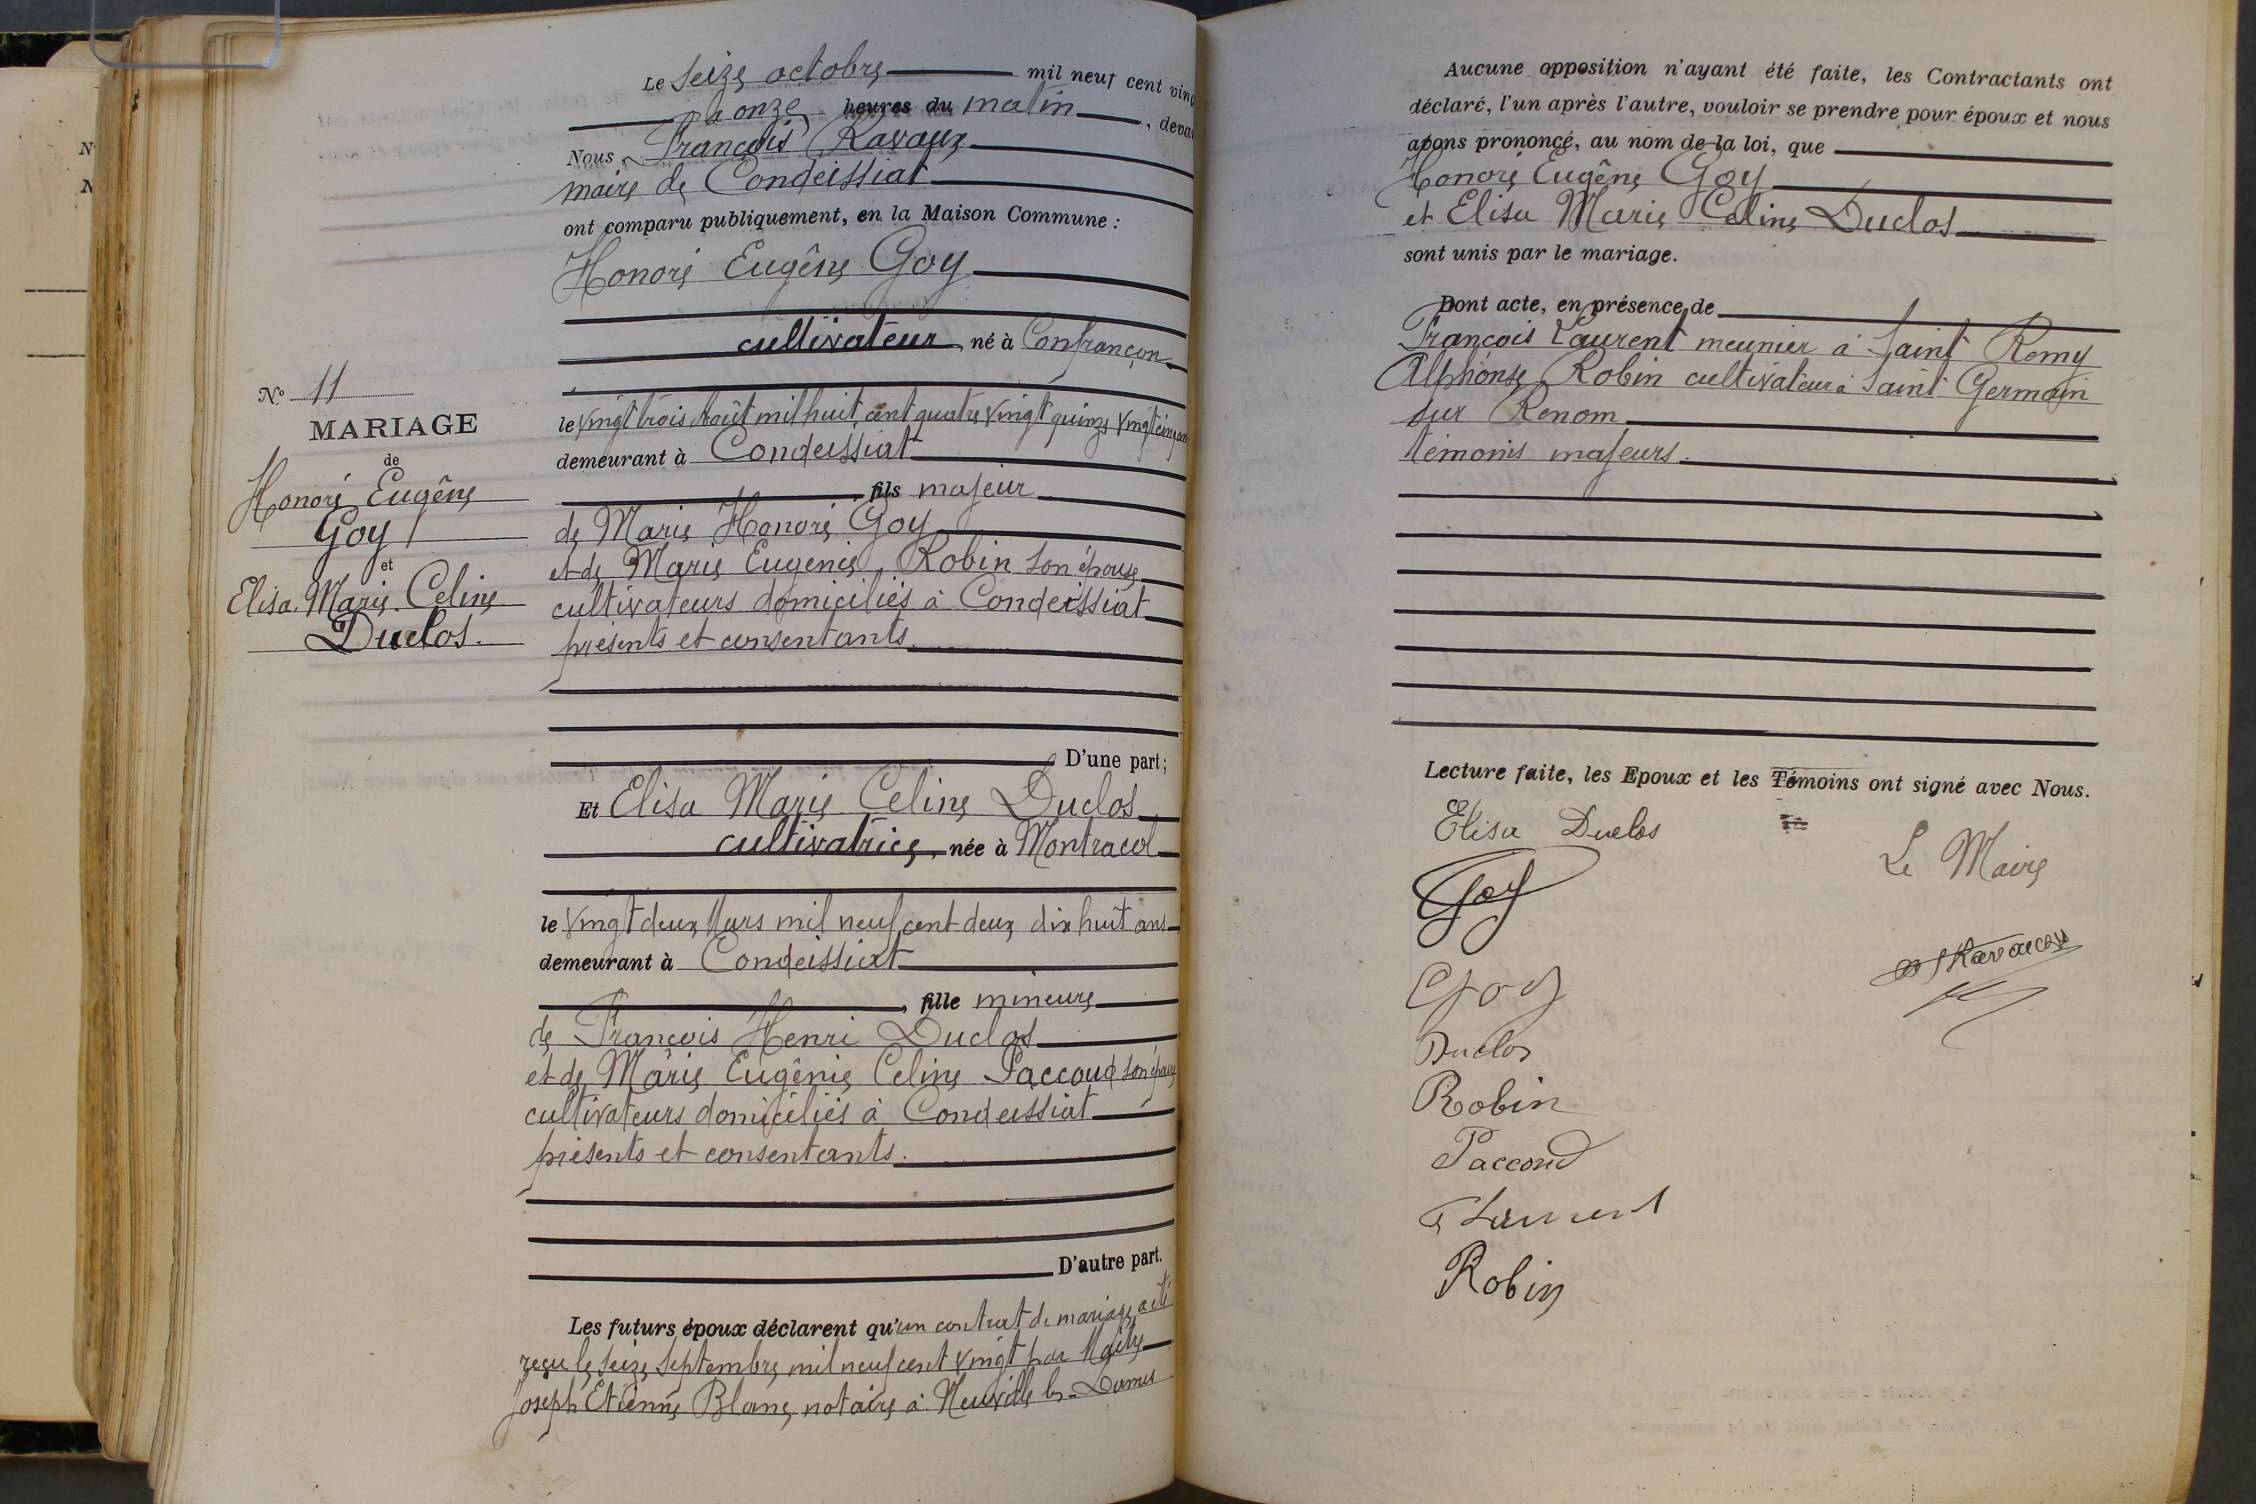 Le seize octobre mil neuf cent ving
à onze heures du matin, deva
Nous, François Ravaux
maire de Condeissiat
ont comparu publiquement, en la Maison Commune :
Honoré Eugène Goy
cultivateur, né à Confrançon
N° 11
MARIAGE
de
Honoré Eugène
Goy
et
Elisa Marie Celine
Duclos.
le vingt trois Août mil huit cent quatre vingt quinze vingt cinq ans
demeurant à Condeissiat
, fils majeur
de Marie Honoré Goy
et de Marie Eugenie Robin son épouse
cultivateurs domiciliés à Condeissiat
présents et consentants
D'une part;
Et Elisa Marie Celine Duclos
cultivatrice, née à Montracol
le vingt deux Mars mil neuf cent deux dix huit ans
demeurant à Condeissiat
, fille mineure
de François Henri Duclos
et de Marie Eugênie Celine Paccoud son épouse
cultivateurs domiciliés à Condeissiat
présents et consentants.
D'autre part.
Les futurs époux déclarent qu'un contrat de mariage a été
reçu le seize Septembre mil neuf cent vingt par Maître
Joseph Etienne Blanc notaire à Neuville les-Dames
Aucune opposition n'ayant été faite, les Contractants ont
déclaré, l'un après l'autre, vouloir se prendre pour époux et nous
avons prononcé, au nom de la loi, que
Honoré Eugêne Goy
et Elisa Marie Celine Duclos
sont unis par le mariage.
Dont acte, en présence de
François Laurent meunier à Saint Remy
Alphonse Robin cultivateur à Saint Germain
sur Renom
témoins majeurs.
Lecture faite, les Epoux et les Témoins ont signé avec Nous.
Elisa Duclos
Le Maire
Goy
Ravaux
Goy
Duclos
Robin
Paccoud
Laurent
Robin